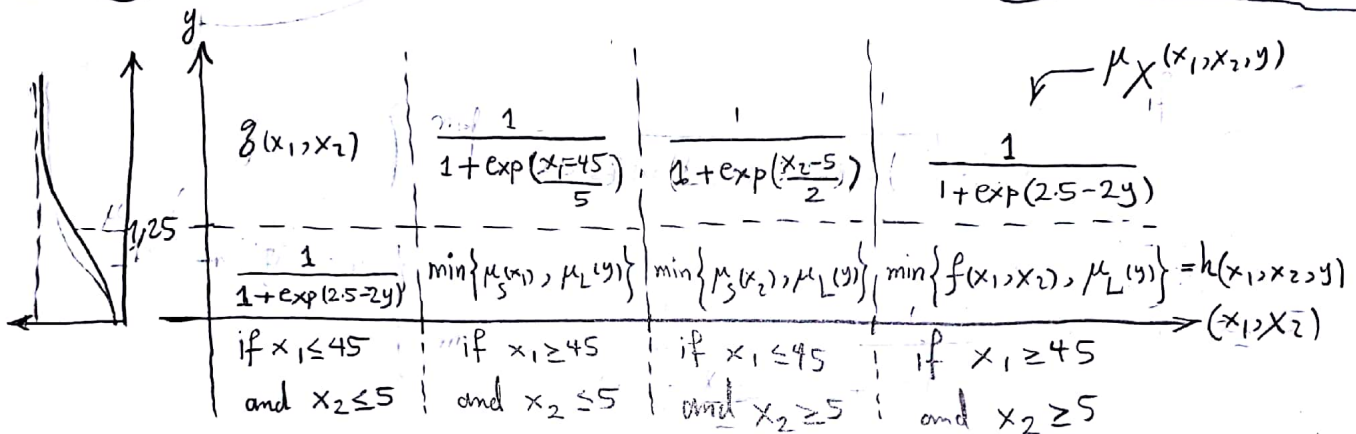 y
μ_X(x₁,x₂,y)
g(x₁,x₂)   1/(1+exp((x₁-45)/5))   1/(1+exp((x₂-5)/2))   1/(1+exp(2.5-2y))
1,25
1/(1+exp(2.5-2y))   min{μ_S(x₁), μ_L(y)}   min{μ_S(x₂), μ_L(y)}   min{f(x₁,x₂), μ_L(y)} = h(x₁,x₂,y)
(x₁,x₂)
if x₁≤45   if x₁≥45   if x₁≤45   if x₁≥45
and x₂≤5   and x₂≤5   and x₂≥5   and x₂≥5